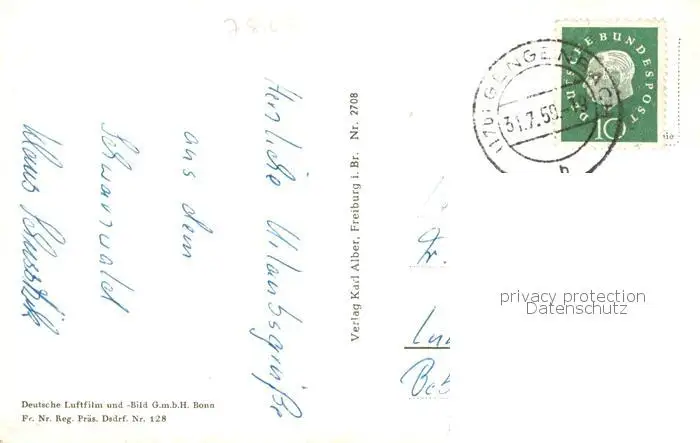 Herzliche Urlaubsgrüße
aus dem
Schwarzwald
Klaus
Deutsche Luftfilm und -Bild G.m.b.H. Bonn
Fr. Nr. Reg. Präs. Dsdrf. Nr. 128
Verlag Karl Alber, Freiburg i. Br. Nr. 2708
DEUTSCHE BUNDESPOST
10
(17b) GENGENBACH
31.7.59
b
Fr.
privacy protection
Datenschutz